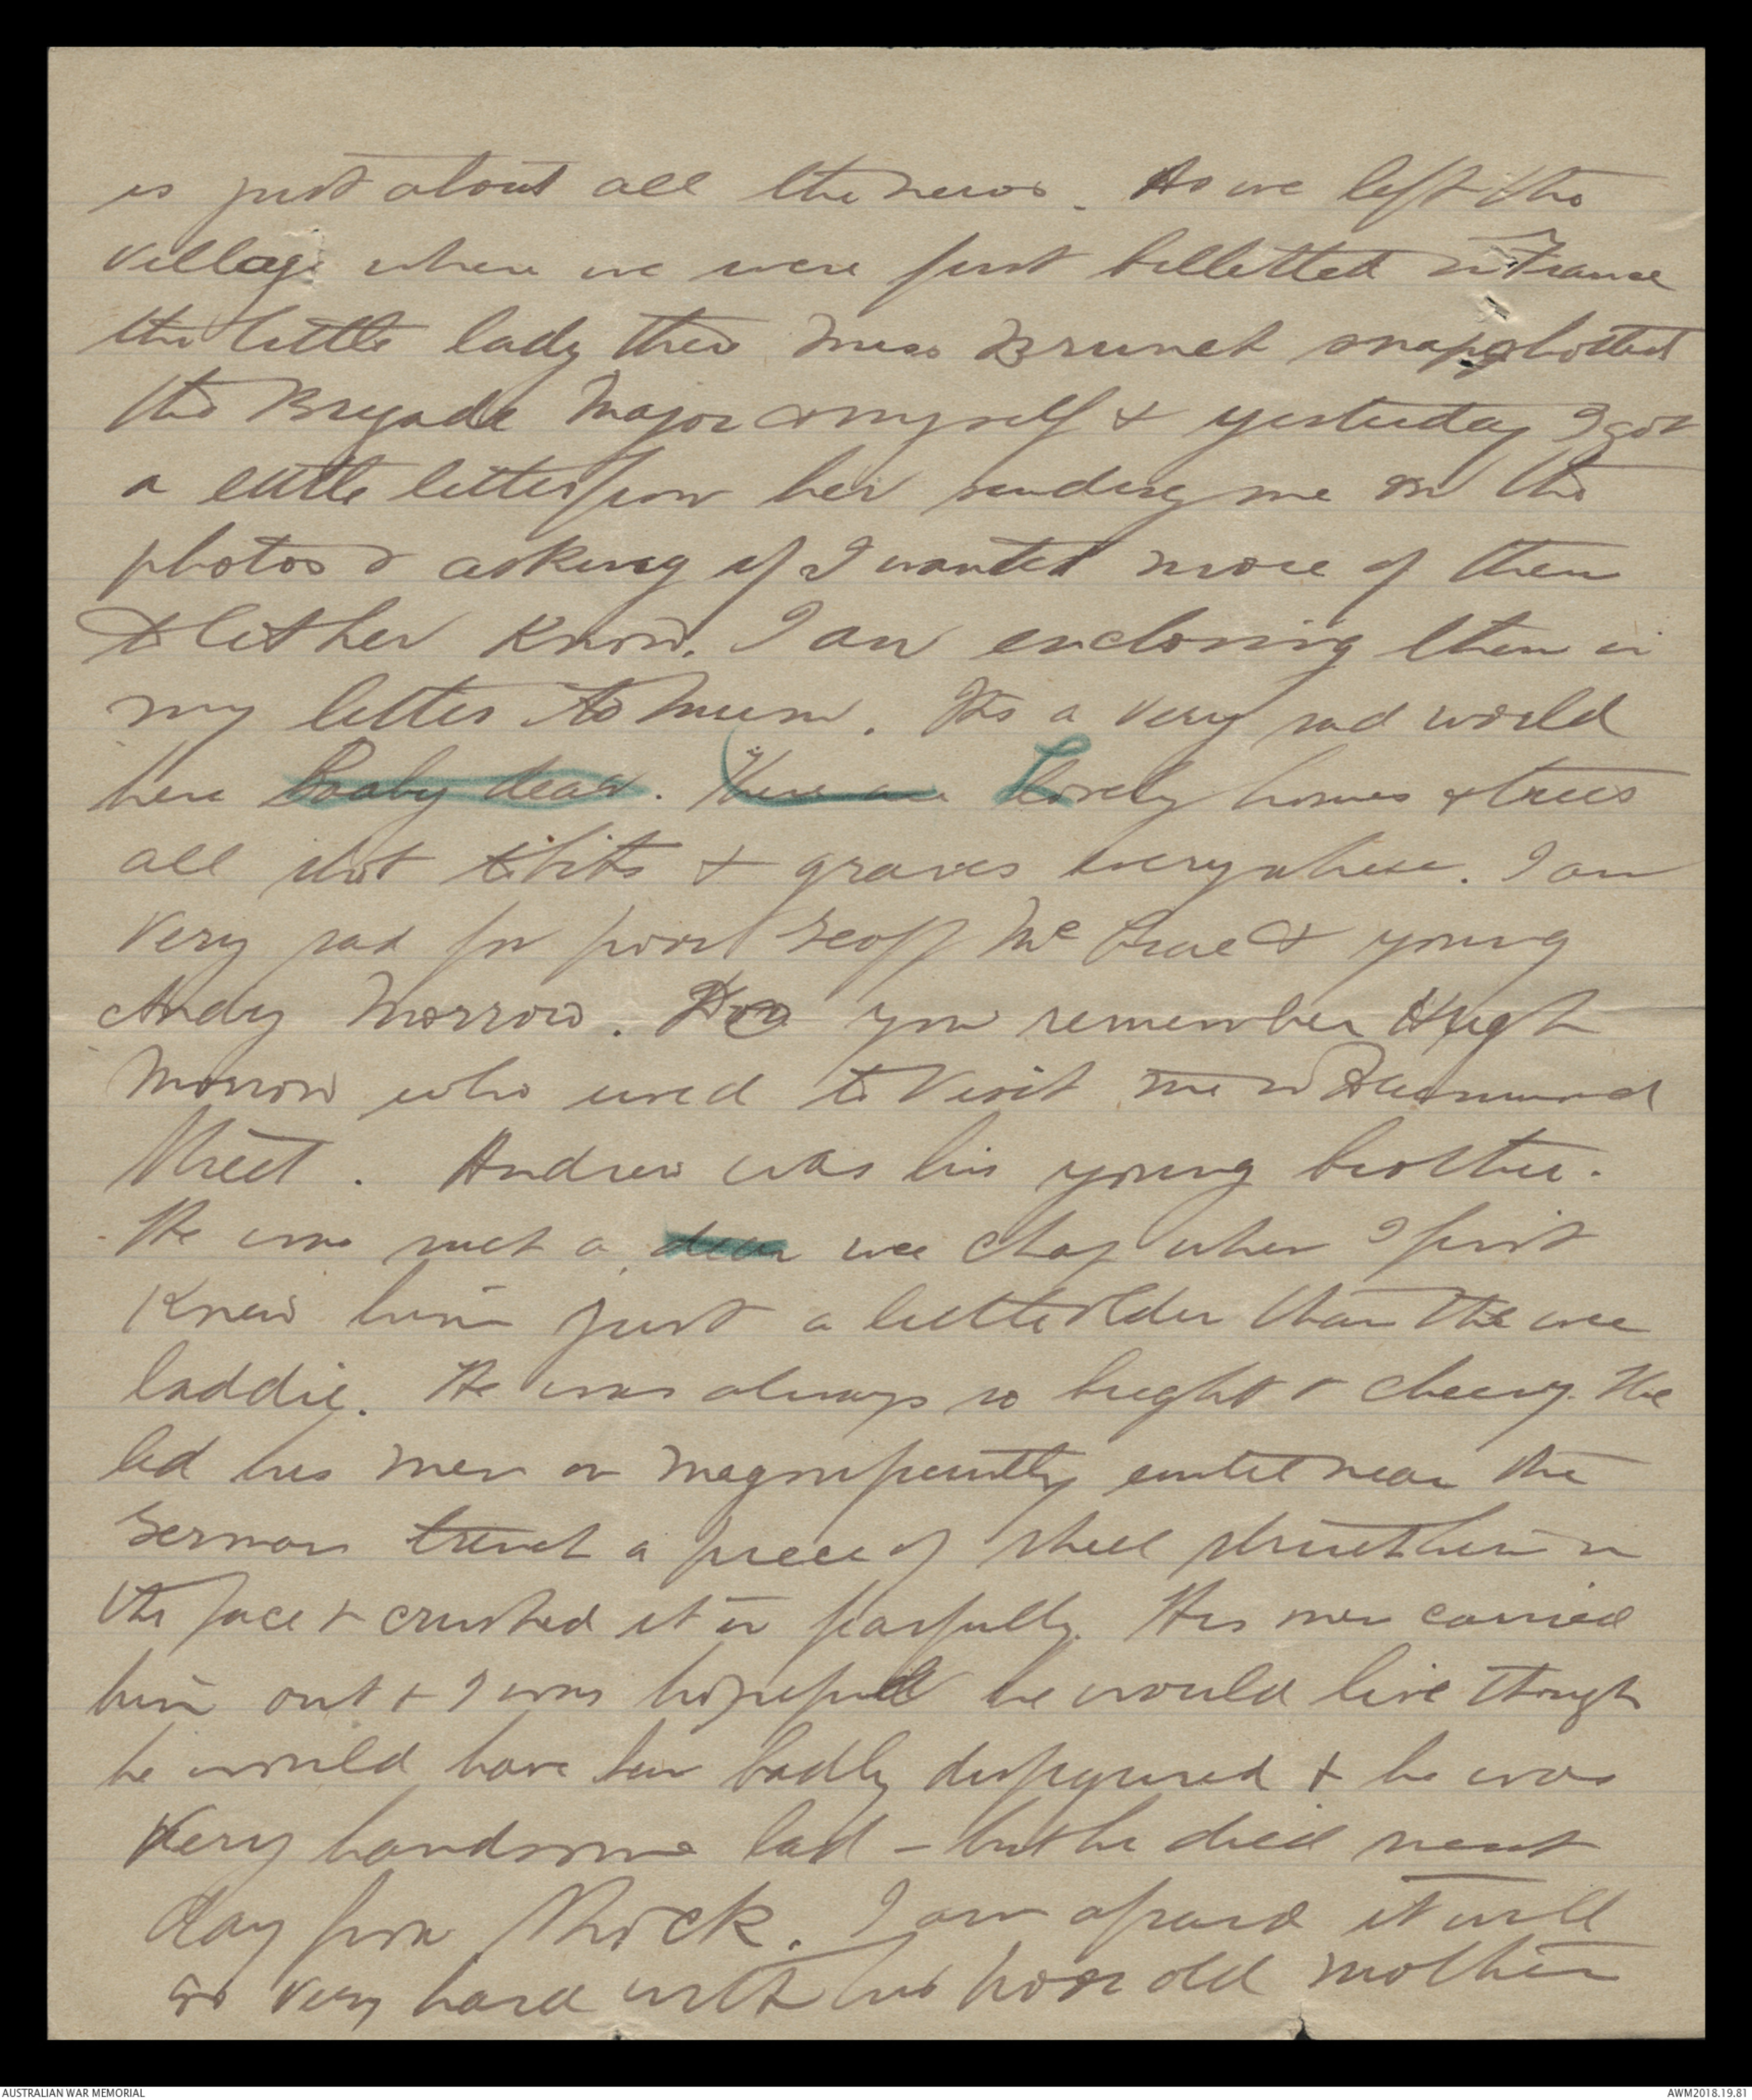 is just about all the news. As we left the
village where we were first billetted in France
the little lady there Miss Brunet snapshotted
the Brigade Major & myself & yesterday I got
a little letter from her sending me on the
photos & asking if I wanted more of them
to let her know. I am enclosing them in
my letter to Mum. Its a very sad world
here Baby dear. There are Lovely homes & trees
all shot to bits & graves everywhere. I am
very sad for poor Geoff McCrae & young
Andy Morrow. Do you remember Hugh
Morrow who used to visit me in Drummond
Street. Andrew was his young brother.
He was such a dear wee chap when I first
knew him just a little older than the wee
laddie. He was always so bright & cheery. He
led his men on magnificently until near the
German trench a piece of shell struck him in
the face & crushed it in fearfully. His men carried
him out & I was hopeful he would live though
he would have been badly disfigured & he was
very handsome lad - but he died next
day from shock. I am afraid it will
go very hard with his poor old mother
AUSTRALIAN WAR MEMORIAL
AWM2018.19.81